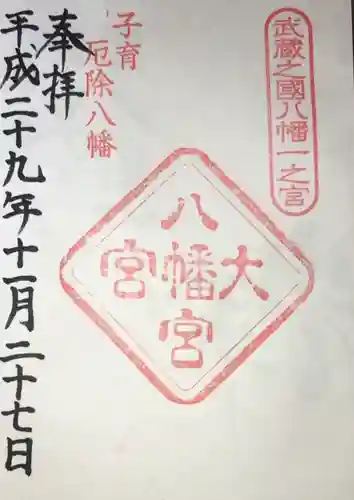 武蔵之國八幡一之宮
子育
厄除八幡
八幡宮
大
宮
奉拝
平成二十九年十一月二十七日